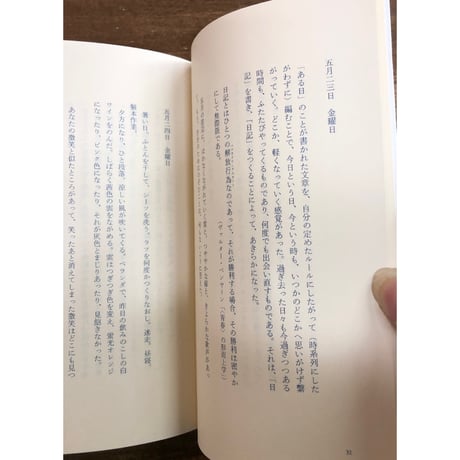 五月二三日 金曜日
「ある日」のことが書かれた文章を、自分の定めたルールにしたがって(時系列にした
がわずに)編むことで、今日という日、今という時も、いつかのどこかへ思いがけず繋
がっていく、どこか、軽くなっていく感覚があった。過ぎ去った日々も今過ぎつつある
時間も、ふたたびやってくるものであり、何度でも出会い直すものである。それは、「日
記」を書き、「日記」をつくることによって、あきらかになった。
日記とはひとつの解放行為なのであって、それが勝利する場合、その勝利は密やか
にして無際限である。
(ヴァルター・ベンヤミン「〈青春〉の形而上学」)
31
五月二四日 金曜日
暑い日。ふとんを干して、シーツを洗う。
製本作業。
夕方になり、ひと段落。涼しい風が吹いてくる。ベランダで、昨日の飲みのこしの白
ワインをのんだ。しばらく茜色の雲をながめる。雲はつぎつぎ色を変え、蛍光オレンジ
になったり、ピンク色になったり、それが灰色とまじりあったり、見飽きなかった。
あなたの微笑と似たところがあって、笑ったあと消えてしまった微笑はどこにも見つ